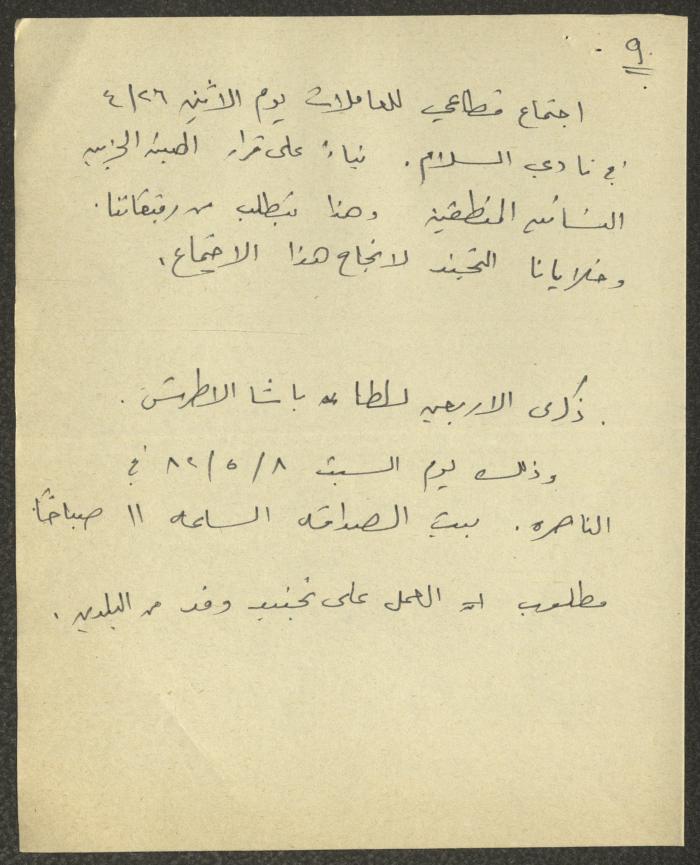 ٩
اجتماع قطاعي للعاملات يوم الاثنين ٤/٢٦
في نادي السلام. بناءً على قرار الهيئة الحزبية
النسائية المنطقية وهذا يتطلب من رفيقاتنا
وخلايانا التجند لانجاح هذا الاجتماع.
ذكرى الاربعين لسلطان باشا الاطرش.
وذلك يوم السبت ٨٢/٥/٨ في
الناصرة. بيت الصداقة الساعة ١١ صباحًا
مطلوب العمل على تجنيد وفد من البلدين.